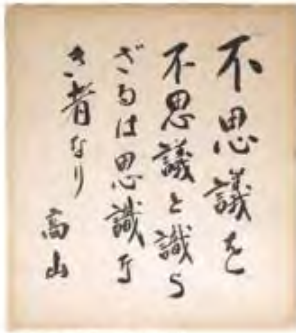 不思議を
不思議と識ら
ざるは思識な
き者なり
高山